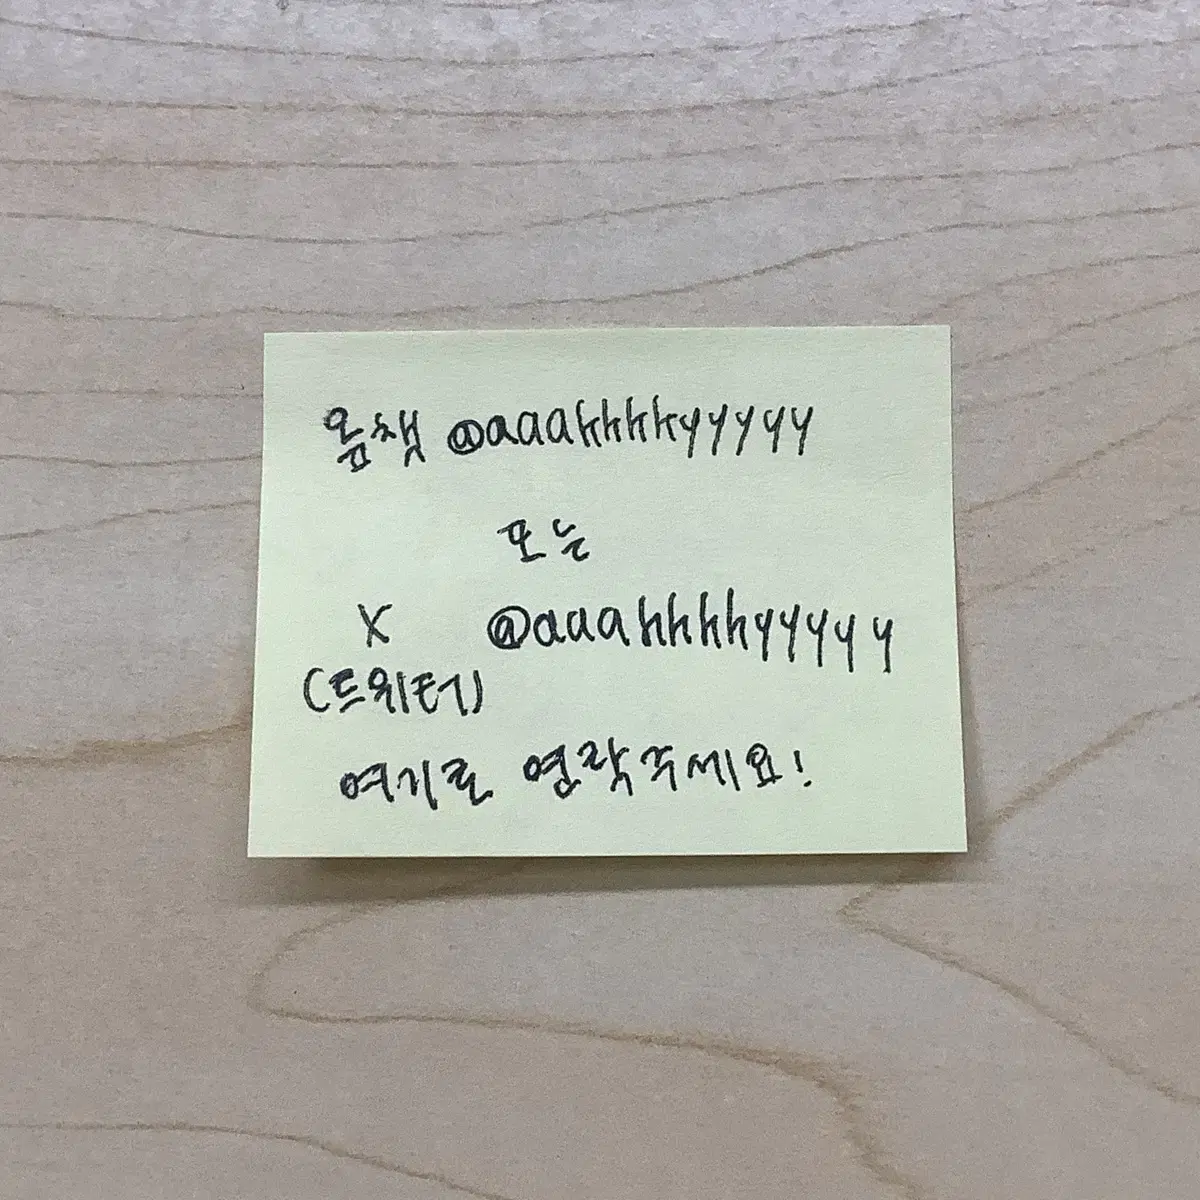 옾챗 @aaahhhhyyyyy
또는
X @aaahhhhyyyyy
(트위터)
여기로 연락주세요!